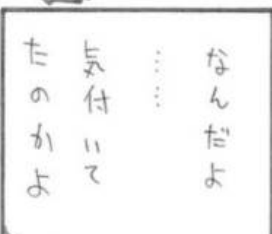 なんだよ
……
気付いて
たのかよ